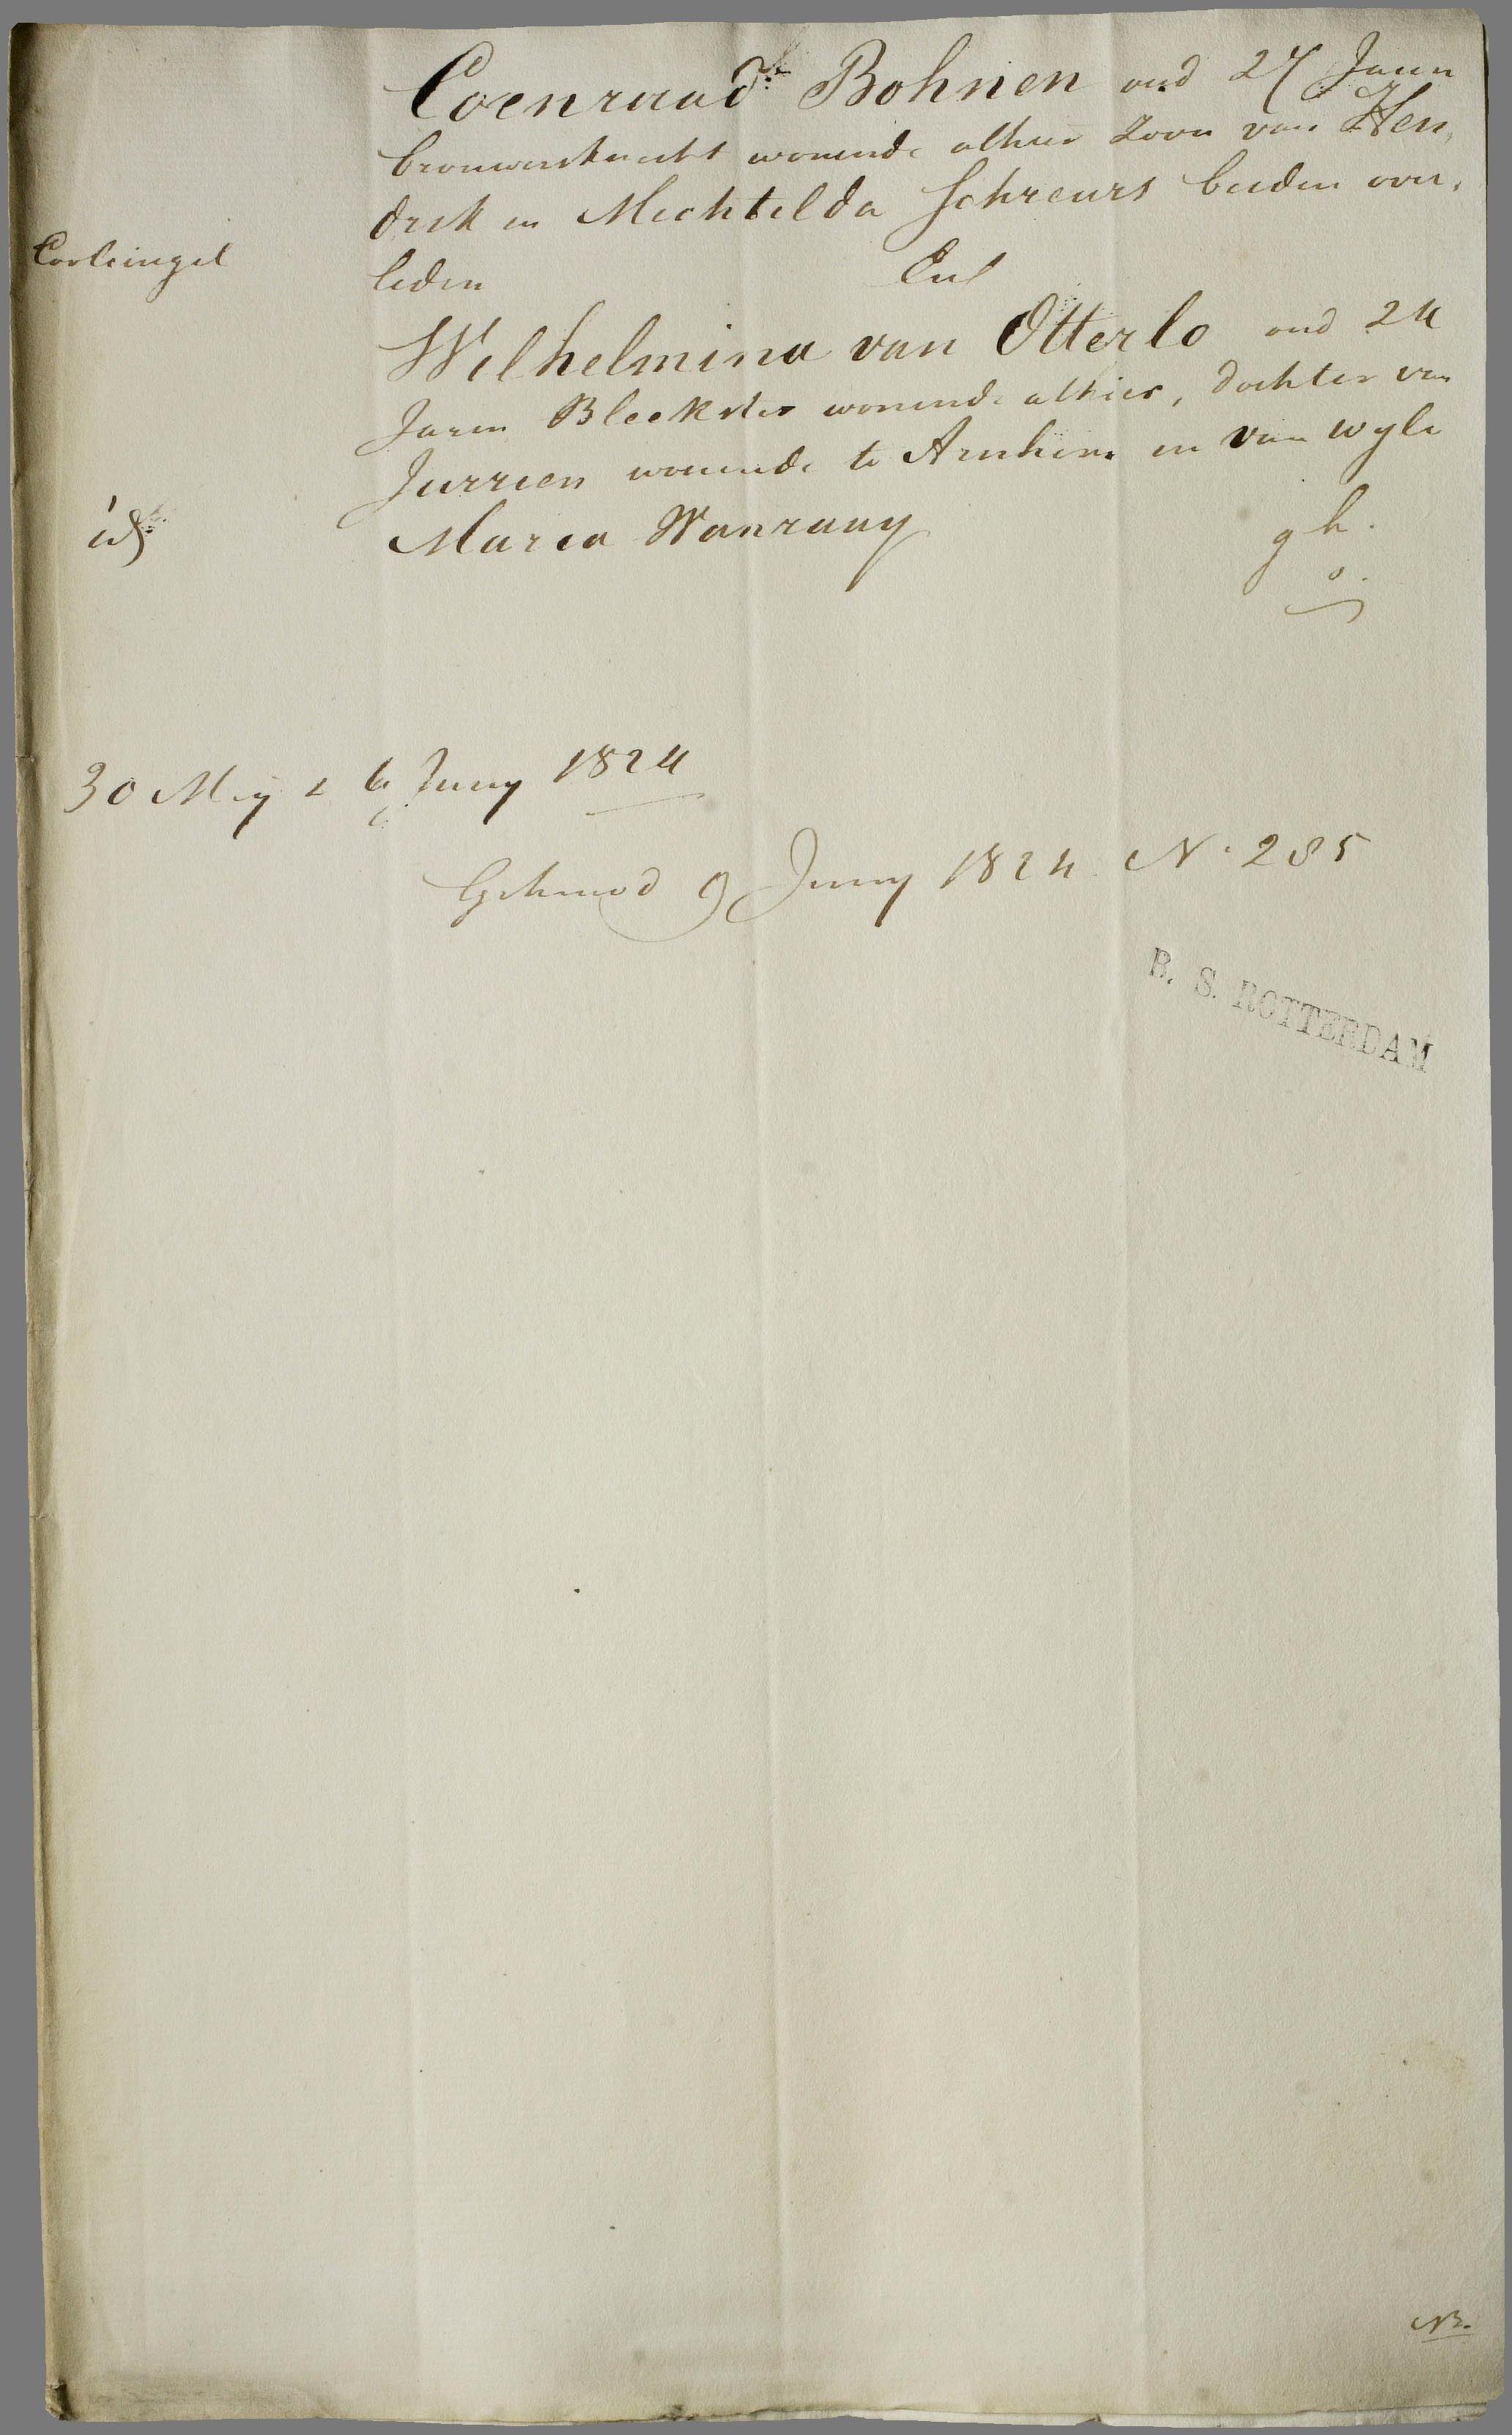 Coenraad Bohnen oud 27 Jaren
brouwersknecht wonende alhier Zoon van Hen,
drik en Mechtilda Schreurs beiden over,
Coolsingel
leden En
Wilhelmina van Otterlo oud 24
Jaren Bleekster wonende alhier, dochter van
Jurrien wonende te Arnhem en van wyle
id Maria Wanraay g h.
o.
30 Mey & 6 Juny 1824
Gehuwd 9 Juny 1824 N. 285
B. S. ROTTERDAM